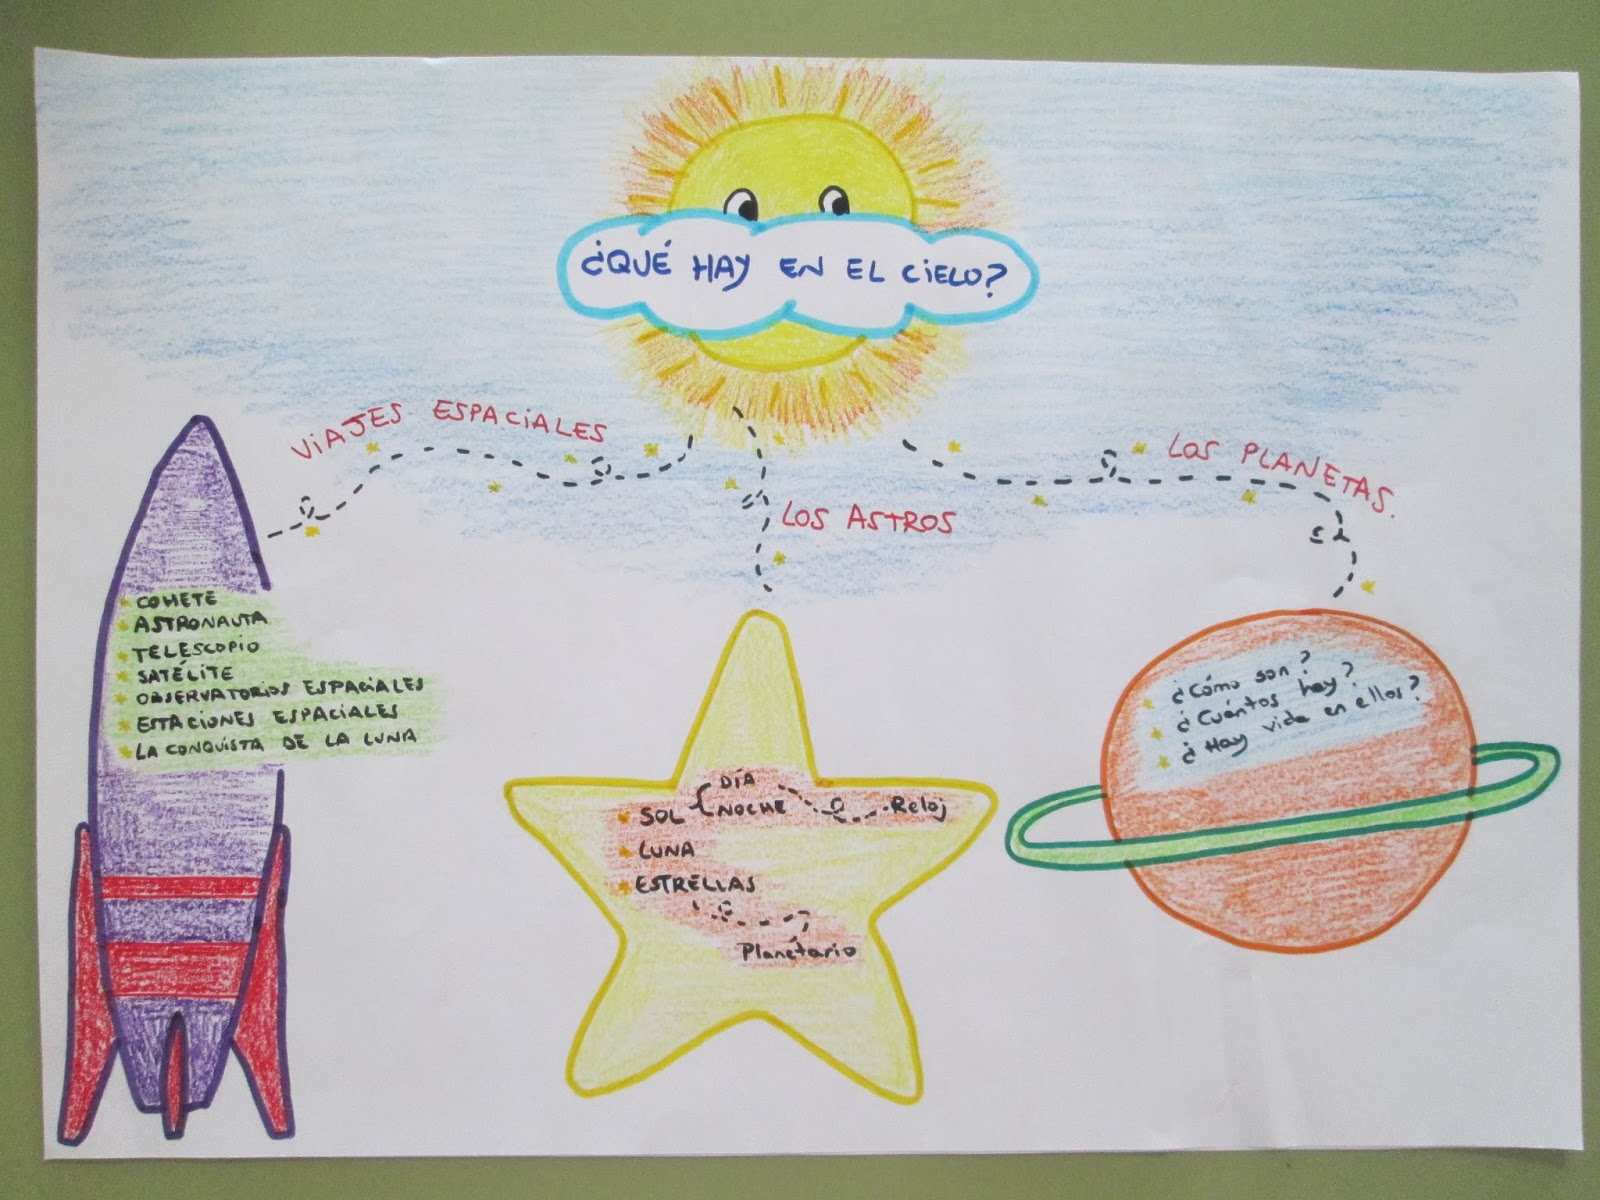 ¿QUÉ HAY EN EL CIELO?
VIAJES ESPACIALES
LOS ASTROS
LOS PLANETAS.
COHETE
ASTRONAUTA
TELESCOPIO
SATÉLITE
OBSERVATORIOS ESPACIALES
ESTACIONES ESPACIALES
LA CONQUISTA DE LA LUNA
DÍA
SOL NOCHE Reloj
LUNA
ESTRELLAS
Planetario
¿Cómo son?
¿Cuántos hay?
¿Hay vida en ellos?